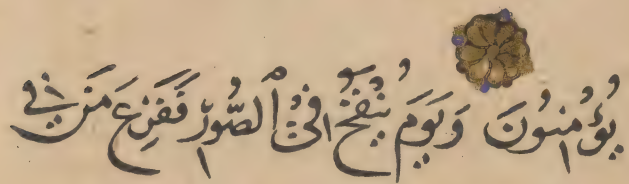 يُؤْمِنُونَ وَيَوْمَ يُنْفَخُ فِي ٱلصُّورِ فَفَزِعَ مَنْ فِي